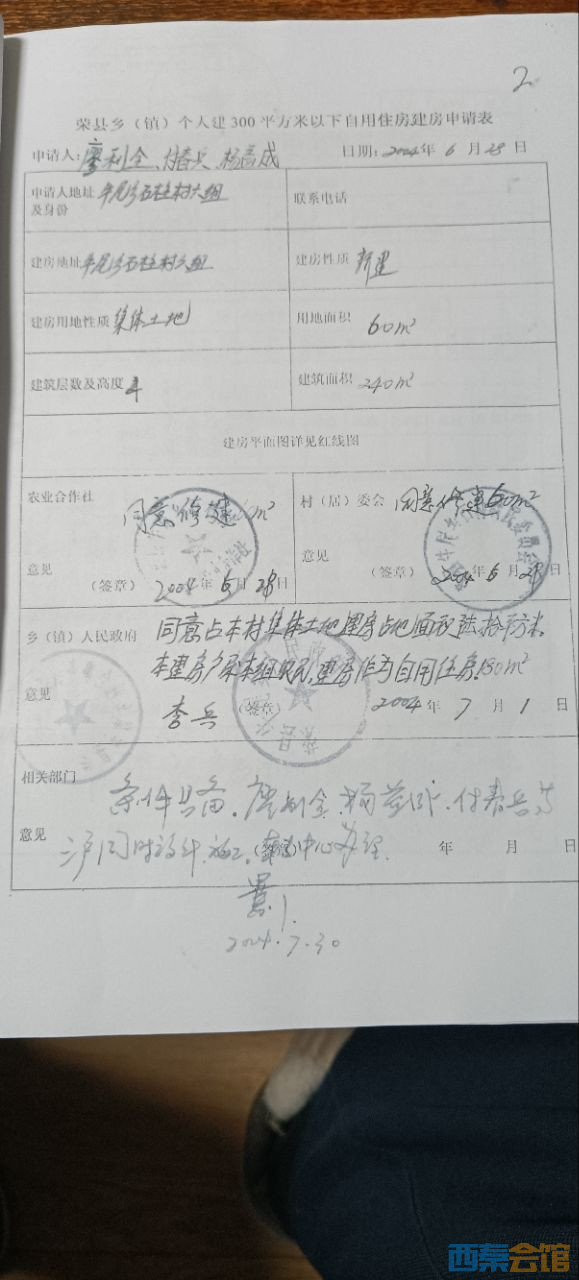 2
荣县乡（镇）个人建300平方米以下自用住房建房申请表
申请人：廖利全、付春兵、杨 日期：2004年6月28日
申请人地址及身份 牟尾湾石柱村六组 联系电话
建房地址 牟尾湾石柱村六组 建房性质 新建
建房用地性质 集体土地 用地面积 60m²
建筑层数及高度 4 建筑面积 240m²
建房平面图详见红线图
农业合作社 同意修建 m² 村（居）委会 同意修建60m²
意见 意见
（签章） 2004年6月28日 （签章） 2004年6月28日
乡（镇）人民政府 同意占本村集体土地建房占地面积陆拾平方米，
本建房户系本组农民，建房作为自用住房180m²
意见 李兵 （签章） 2004年7月1日
相关部门 条件具备。廖利全、杨 、付春兵等
意见 三户同时设计、施工。 中心办理 （签章） 年 月 日
2004.7.30
西秦会馆